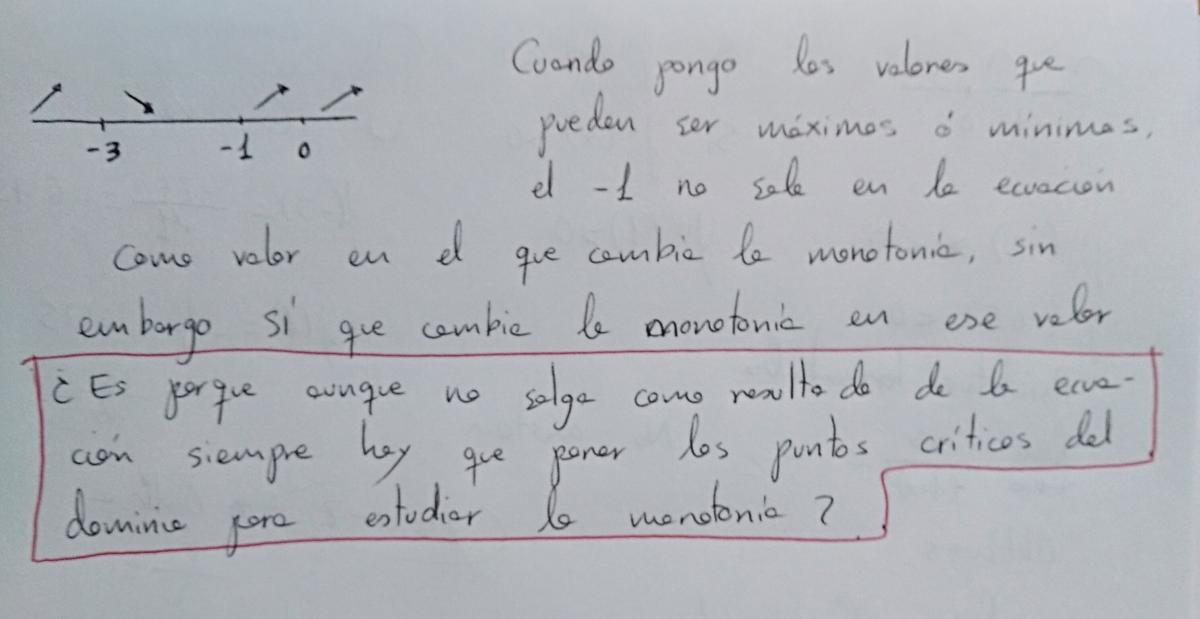 Cuando pongo los valores que
pueden ser máximos ó mínimos,
-3 -1 0
el -1 no sale en la ecuación
como valor en el que cambia la monotonía, sin
embargo sí que cambia la monotonía en ese valor
¿Es porque aunque no salga como resultado de la ecua-
ción siempre hay que poner los puntos críticos del
dominio para estudiar la monotonía?